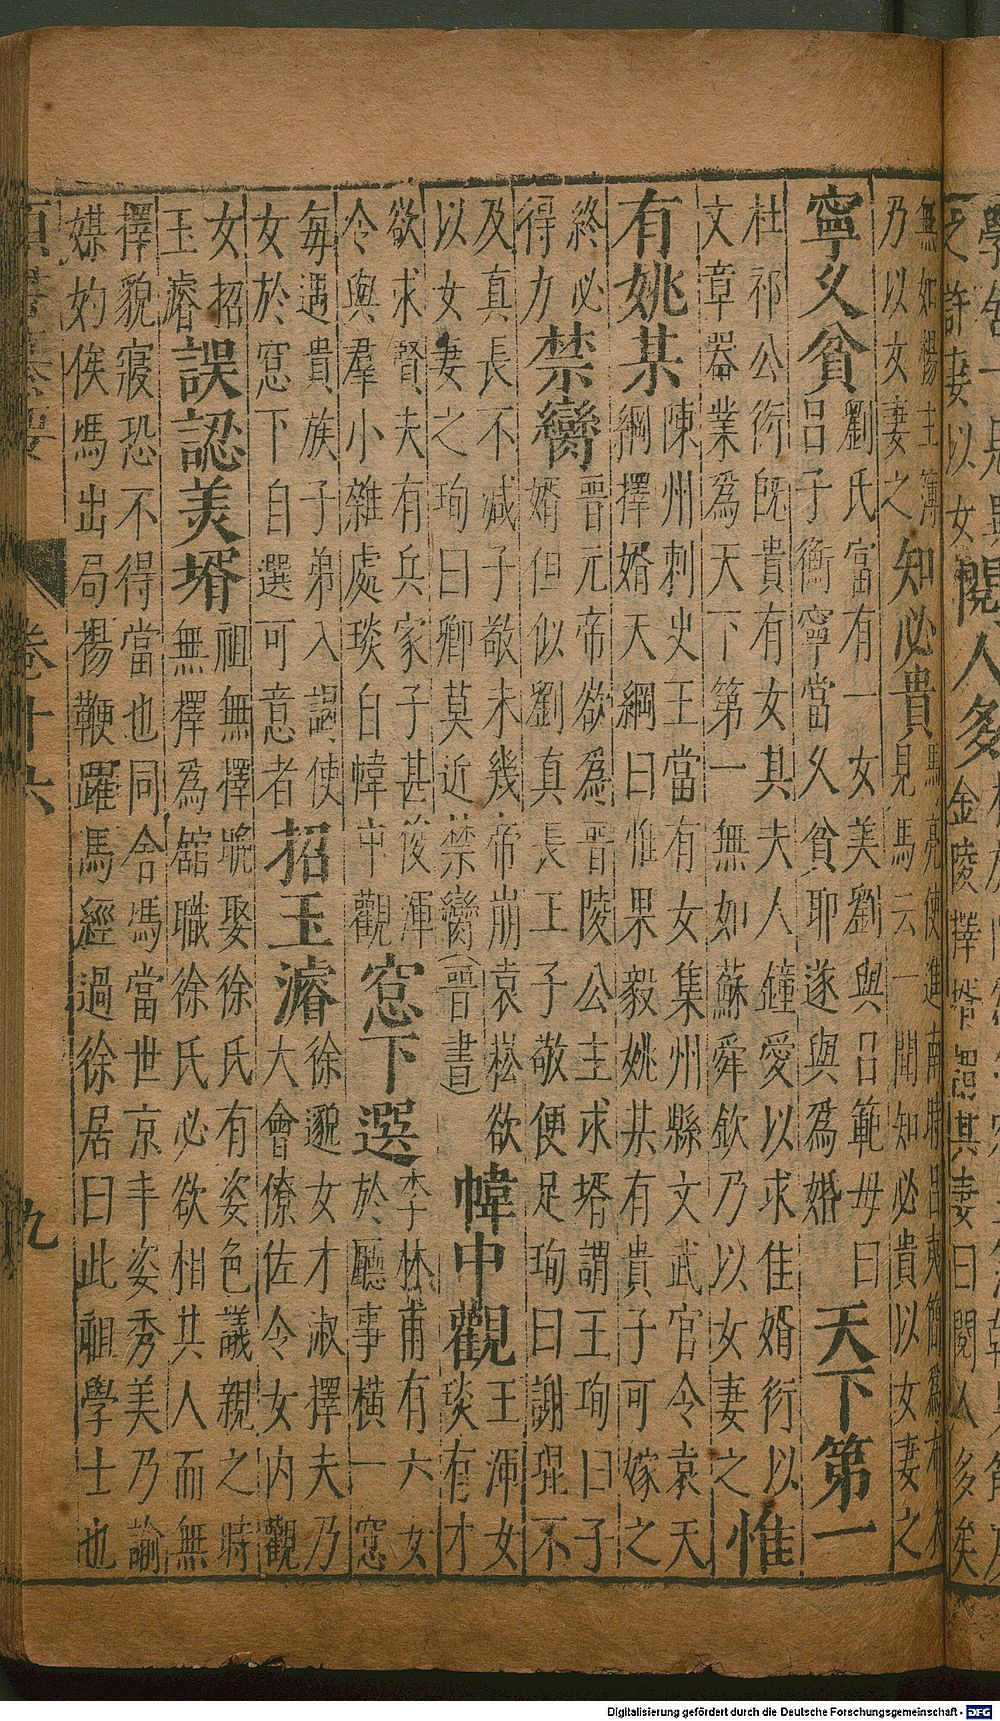 之許妻以女
閱人多
金陵擇壻
其妻曰閱人多矣
無如楊主簿
乃以女妻之
知必貴
馬亮使進南時呂夷簡為布衣
見馬云一聞知必貴以女妻之
寧乆貧
劉氏富有一女美劉與呂範母曰
呂子衡寧當乆貧耶遂與為婚
天下第一
杜祁公衍既貴有女其夫人鐘愛以求佳婿衍以
文章器業為天下第一無如蘇舜欽乃以女妻之
惟有姚某
陳州刺史王當有女集州縣文武官令袁天
綱擇婿天綱曰惟果毅姚某有貴子可嫁之
終必
得力
禁臠
晉元帝欲為晉陵公主求壻謂王珣曰子
婿但似劉真長王子敬便足珣曰謝琨不
及真長不减子敬未幾帝崩袁崧欲
以女妻之珣曰卿莫近禁臠(晉書)
幃中觀
王渾女
琰有才
欲求賢夫有兵家子甚俊渾
令與羣小雜處琰自幃中觀
窓下選
李林甫有六女
於廳事橫一窓
每遇貴族子弟入謁使
女於窓下自選可意者
招玉濬
徐邈女才淑擇夫乃
大會僚佐令女内觀
女招
玉濬
誤認美壻
祖無擇晚娶徐氏有姿色議親之時
無擇為館職徐氏必欲相其人而無
擇貌寢恐不得當也同舍馮當世京丰姿秀美乃諭
媒妁俟馮出局揚鞭躍馬經過徐居曰此祖學士也
卷十六
九
Digitalisierung gefördert durch die Deutsche Forschungsgemeinschaft - DFG